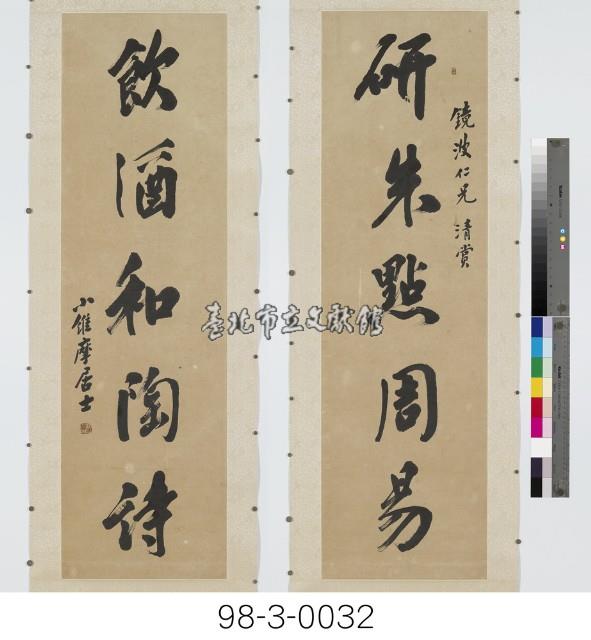 研朱點周易
鏡波仁兄 清賞
飲酒和陶詩
小維摩居士
臺北市立文獻館
98-3-0032